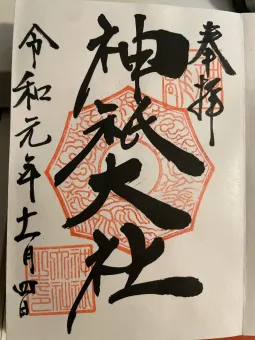 奉拝
神祇大社
令和元年十一月四日